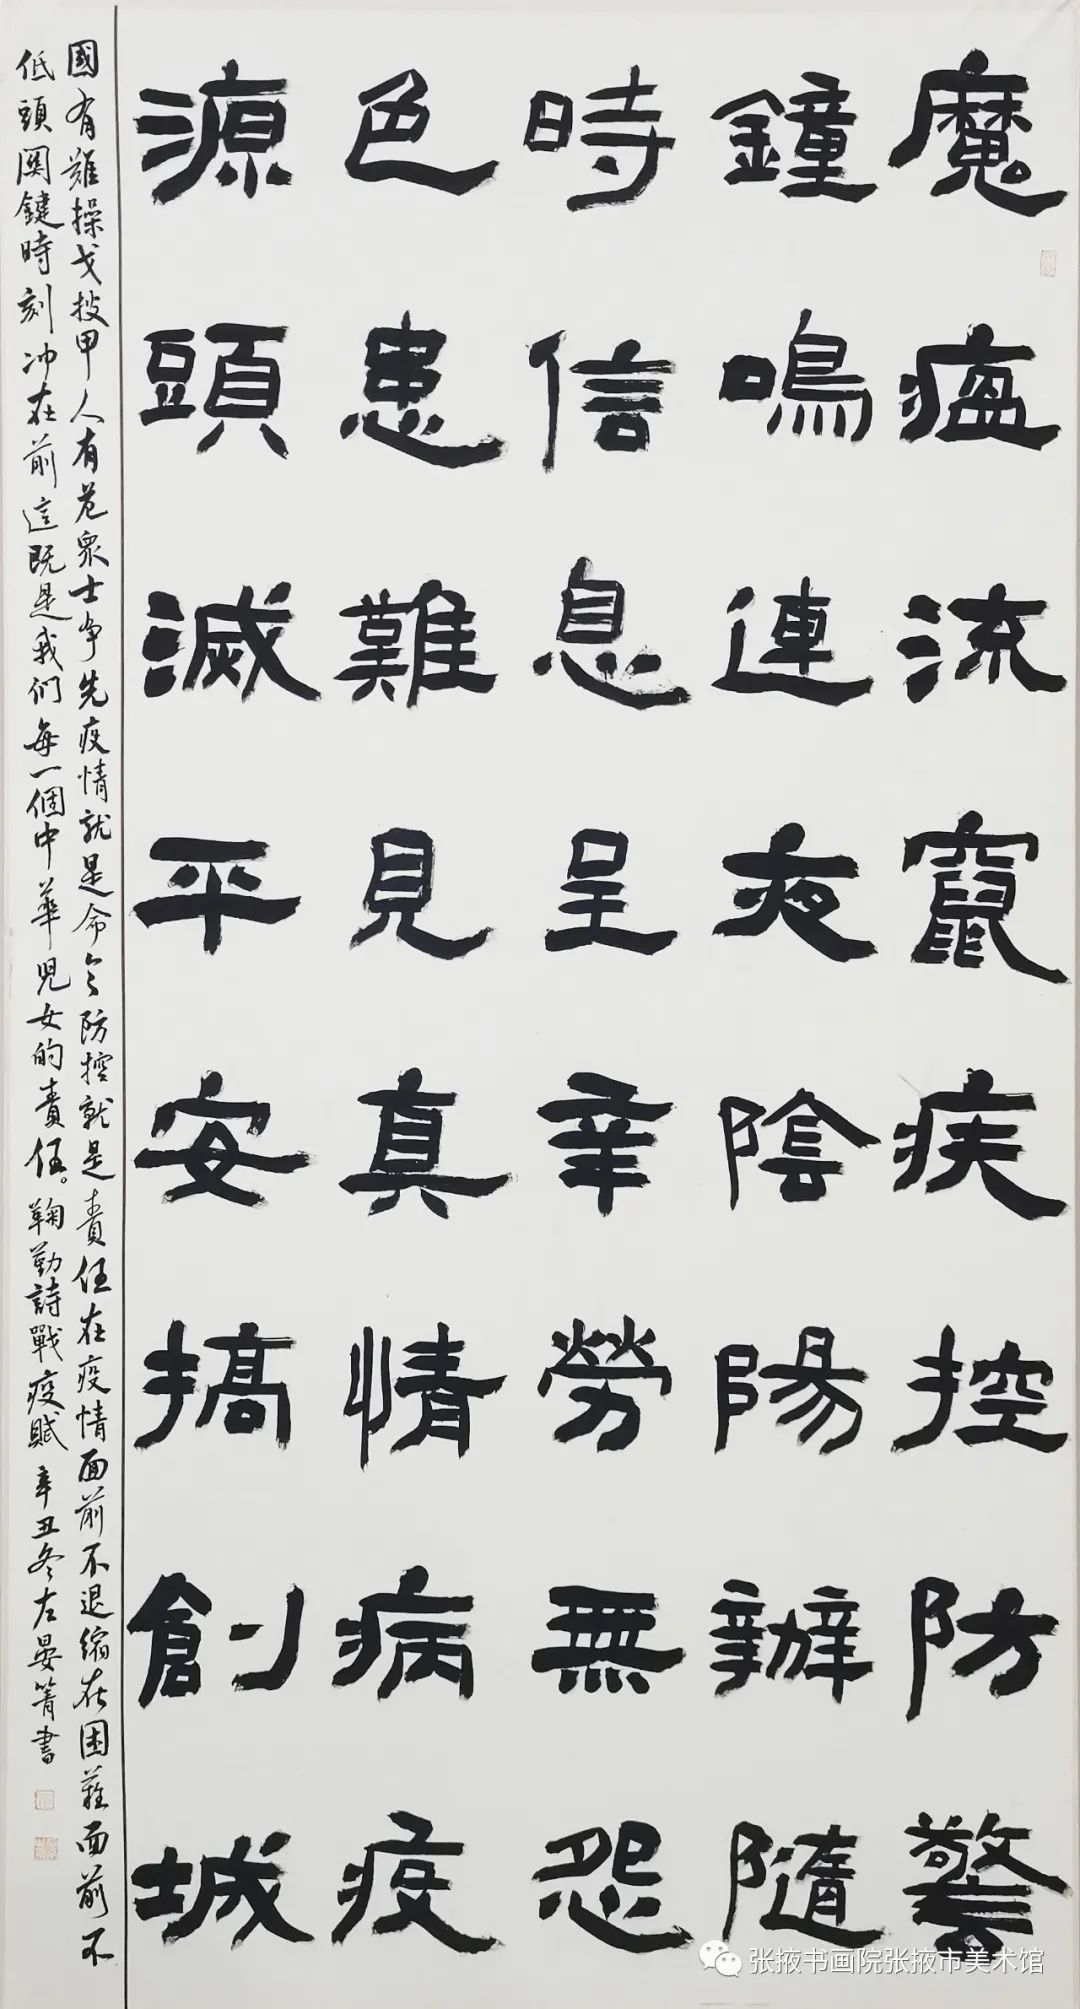 魔瘟流竄疾控防警
鐘鳴連夜陰陽辦隨
時信息呈辛勞無怨
色患難見真情病疫
源頭滅平安搞創城
國有難操戈披甲人有危衆士争先疫情就是命令防控就是責任在疫情面前不退缩在困難面前不
低頭関鍵時刻冲在前這既是我们每一個中華児女的責任。鞠勤詩戰疫賦 辛丑冬左晏箐書
张掖书画院张掖市美术馆